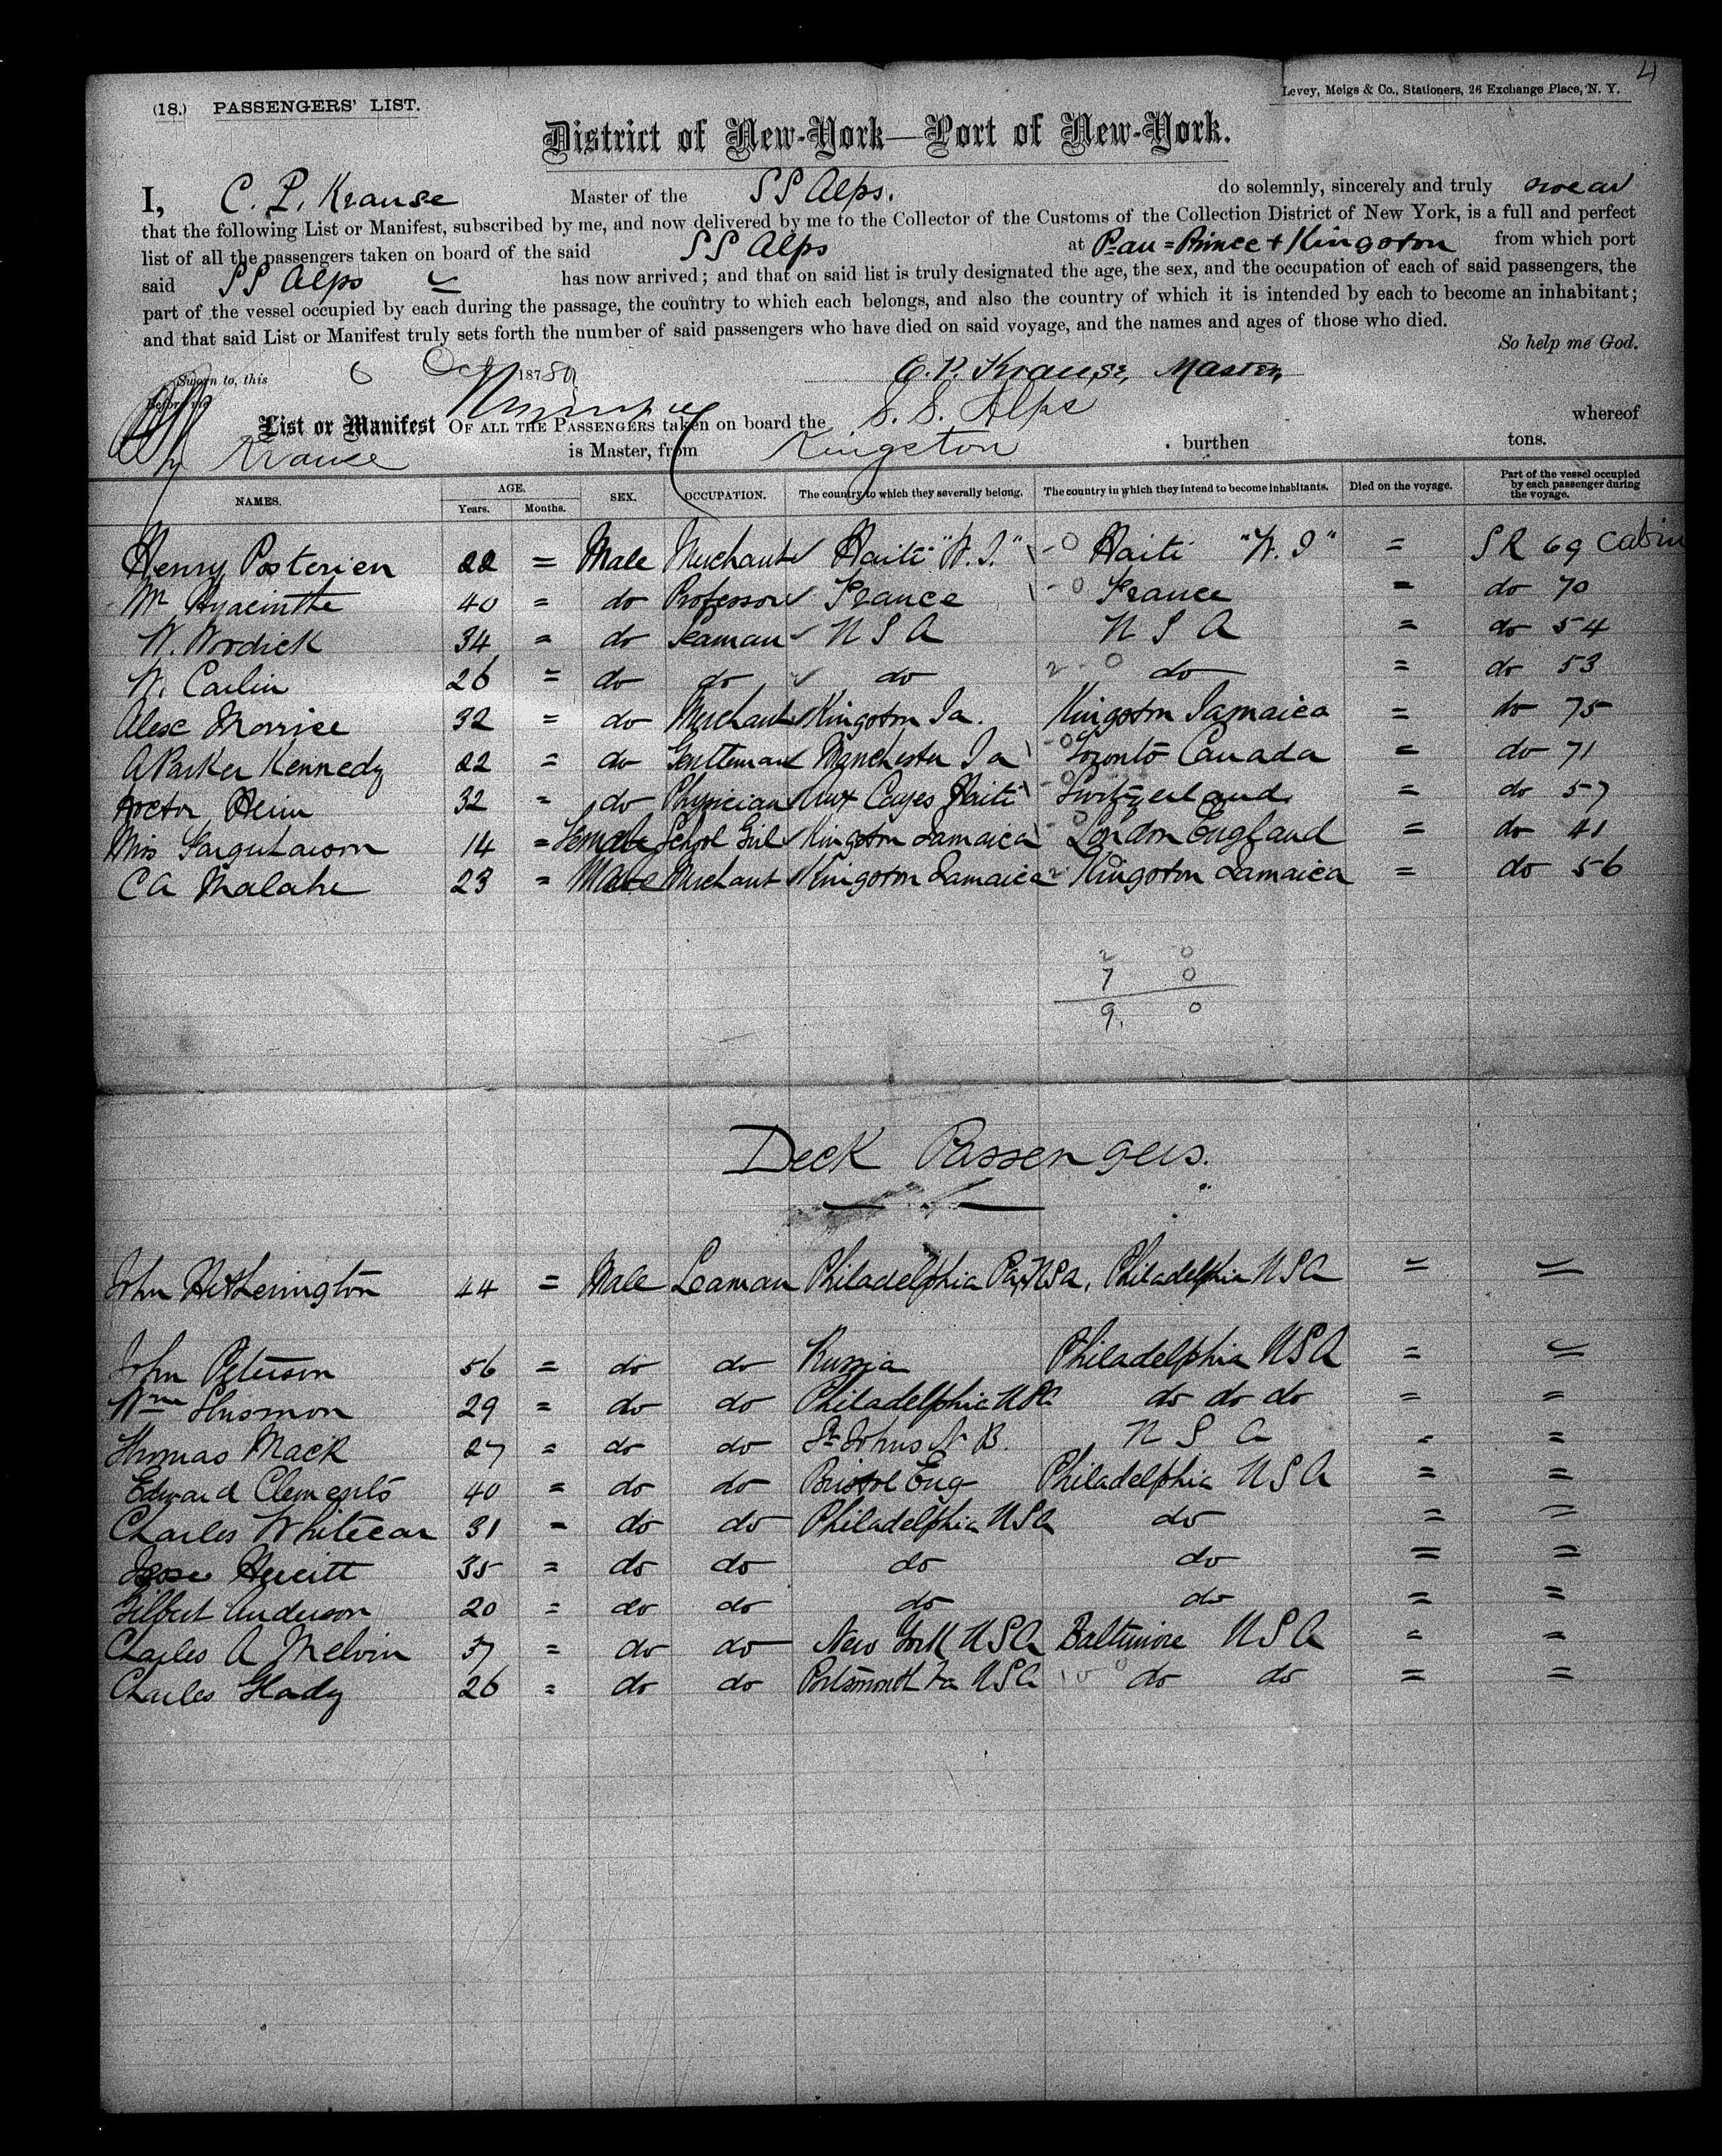 4
(18.) PASSENGERS' LIST.
Levey, Meigs & Co., Stationers, 26 Exchange Place, N. Y.
District of New-York—Port of New-York.
I, C. P. Krause Master of the SS Alps. do solemnly, sincerely and truly swear
that the following List or Manifest, subscribed by me, and now delivered by me to the Collector of the Customs of the Collection District of New York, is a full and perfect
list of all the passengers taken on board of the said SS Alps at P-au=Prince + Kingston from which port
said SS Alps has now arrived; and that on said list is truly designated the age, the sex, and the occupation of each of said passengers, the
part of the vessel occupied by each during the passage, the country to which each belongs, and also the country of which it is intended by each to become an inhabitant;
and that said List or Manifest truly sets forth the number of said passengers who have died on said voyage, and the names and ages of those who died.
So help me God.
Sworn to, this 6 Oct 1878
C. P. Krause, Master
Before me
List or Manifest OF ALL THE PASSENGERS taken on board the S. S. Alps whereof
Krause is Master, from Kingston burthen tons.
NAMES. AGE. Years. Months. SEX. OCCUPATION. The country to which they severally belong. The country in which they intend to become inhabitants. Died on the voyage. Part of the vessel occupied by each passenger during the voyage.
Henry Posterien 22 = Male Merchant Haiti "W. I." Haiti "W. I" = SR 69 Cabin
Mr Hyacinthe 40 = do Professor France France = do 70
W. Wordick 34 = do Seaman U S A U S A = do 54
W. Carlin 26 = do do do do = do 53
Alexc Morrice 32 = do Merchant Kingston Ja. Kingston Jamaica = do 75
A Parker Kennedy 22 = do Gentleman Manchester Ja Toronto Canada = do 71
Doctor Heim 32 = do Physician Aux Cayes Haiti Switzerland = do 57
Miss Farquharson 14 = Female School Girl Kingston Jamaica London England = do 41
C A Malahe 23 = Male Merchant Kingston Jamaica Kingston Jamaica = do 56
2 0
7 0
9. 0
Deck Passengers.
John Hetherington 44 = Male Seaman Philadelphia Pa, USA, Philadelphia USA = =
John Peterson 56 = do do Russia Philadelphia USA = =
Wm Husmon 29 = do do Philadelphia USA do do do = =
Thomas Mack 27 = do do St Johns N B. U S A = =
Edward Clements 40 = do do Bristol Eng Philadelphia U S A = =
Charles Whitecar 31 = do do Philadelphia USA do = =
Jesse Hewitt 35 = do do do do = =
Gilbert Anderson 20 = do do do do = =
Charles A Melvin 37 = do do New York USA Baltimore U S A = =
Charles Hady 26 = do do Portsmouth Va USA do do = =